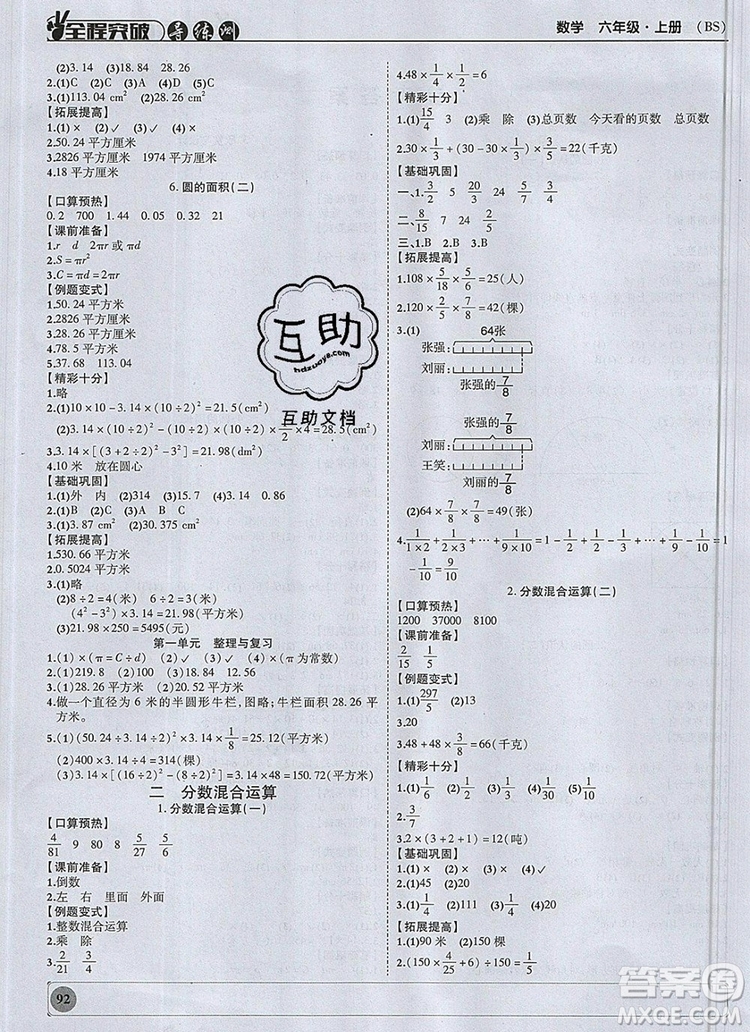 全程突破 导练测
数学 六年级·上册 (BS)
(2)3.14 (3)18.84 28.26
2.(1)C (2)C (3)A
3.(1)113.04 cm²
【拓展提高】
1.(1)× (2)✓ (3)✓ (4)×
2.50.24 平方厘米
3.2826 平方厘米 1974 平方厘米
4.18 平方厘米
6.圆的面积(二)
【口算预热】
0.2 700 1.44 0.05 0.32 21
【课前准备】
1.r d 2πr 或 πd
2.S=πr²
3.C=πd=2πr
【例题变式】
1.50.24 平方米
2.2826 平方厘米
3.50.24 平方厘米
4.78.5 平方米
5.37.68 113.04
【精彩十分】
1.略
2.(1)10×10-3.14×(10÷2)²=21.5(cm²)
(2)3.14×(10÷2)²-(10÷2)×(10÷2)×1/2×4=28.5(cm²)
3.3.14×[(3+2+3)÷2)²-3²]=21.98(dm²)
4.10 米 放在圆心
【基础巩固】
1.(1)外 内 (2)314 (3)15.7 (4)3.14 0.86
2.(1)B (2)C (3)A B C A
3.(1)3.87 cm² (2)30.375 cm²
【拓展提高】
1.530.66 平方米
2.0.5024 平方米
3.(1)略
(2)8÷2=4(米) 6÷2=3(米)
(4²-3²)×3.14=21.98(平方米)
(3)21.98×250=5495(元)
第一单元 整理与复习
1.(1)×(π=C÷d) (2)✓ (3)✓ (4)×(π 为常数)
2.(1)219.8 (2)12.56 (3)50.24
3.(1)28.26 平方米 (2)20.52 平方米
4.做一个直径为 6 米的半圆形牛栏,图略;牛栏面积 28.26 平
方米。
5.(1)(50.24÷3.14÷2)²×3.14×1/8=25.12(平方米)
(2)400÷4×3.14=314(米)
(3)3.14×[(16÷2)²-(8÷2)²]=150.72(平方米)
二 分数混合运算
1.分数混合运算(一)
【口算预热】
4/81 9 80 8 5/27 5/56
【课前准备】
1.倒数
2.左 右 里面 外面
【例题变式】
1.整数混合运算
2.乘 除
3.2/21 4/21
4.48×1/2×1/4=6
【精彩十分】
1.(1)15/4 3 (2)乘 除 (3)总页数 今天看的页数 总页数
2.30×1/5+(30-30×1/5)×2/3=22(千克)
【基础巩固】
一、1.3/2 5 20/7 24 1/3 3/4
二、8/15 7 24 1/2
三、1.B 2.B
【拓展提高】
1.108×5/18×5/6=25(人)
2.120×2/5×5/16=15(棵)
3.(1) 64张
张强:
刘丽:
张强的7/8
刘丽:
王笑:
刘丽的7/8
(2)64×7/8×7/8=49(张)
4.1/1×2+1/2×3+…+1/9×10=1-1/2+1/2-1/3+…+1/9-1/10=1
-1/10=9/10
2.分数混合运算(二)
【口算预热】
1200 37000 8100
【课前准备】
2/15 1/5
【例题变式】
1.(1)297/5 (2)13
3.20
3.48+48×3/8=66(千克)
【精彩十分】
1.(1)1/6 1/6 (2)1/3 1/3 (3)1/30 1/30
2.3/7
3.2×(3+2+1)=12(吨)
【基础巩固】
1.(1)× (2)× (3)× (4)✓
2.(1)45 (2)1/4 (3)111 (4)3/20
3.(1)1/4 (2)8/9 (3)2/11
【拓展提高】
1.(1)90 米 (2)150 米
2.150×(3/5+2/3)-150=40(棵)
92
互助
hdzuoye.com
互助文档
答案圈
MXQE.COM